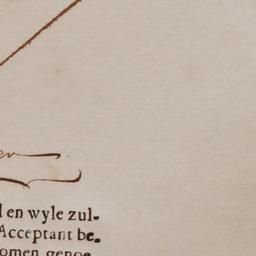 en
l en wyle zul-
Acceptant be-
omen genoe